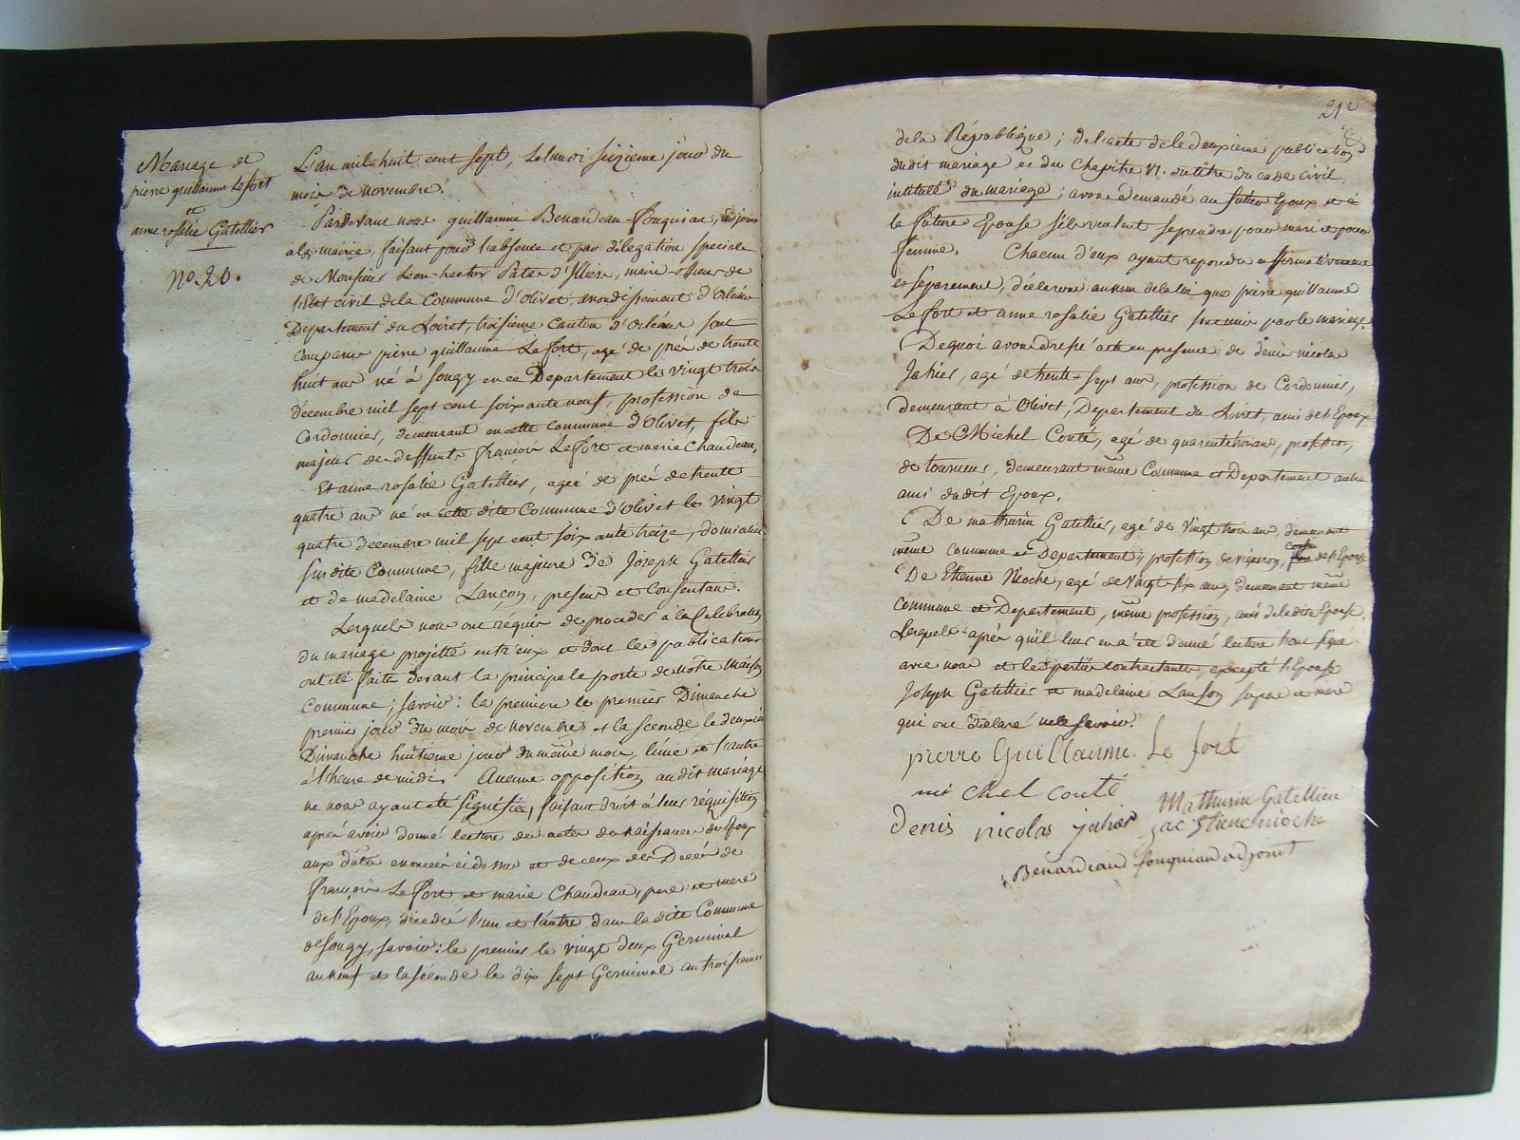 Mariage de
pierre guillaume Lefort
et
anne rosalie Gatellier
No. 20.
L'an mil huit cent sept, Le lundi seizieme jour du
mois de novembre.
Pardevant nous guillaume Benardeau fouquiau, adjoint
a la mairie, faisant pour l'absence et par délégation speciale
de Monsieur Leon-hector Patas d'Illiers, maire officier de
l'Etat civil de la Commune d'Olivet, arrondissement d'Orléans
Departement du Loiret, troisieme Canton d'Orléans sont
comparus pierre guillaume Le fort, agé de près de trente
huit ans né à Sougy en ce Departement le vingt trois
décembre mil sept cent soixante neuf, profession de
Cordonnier, demeurant en cette commune d'Olivet, fils
majeur de deffunts françois Le fort et marie Chaudeau,
Et anne rosalie Gatellier, agée de près de trente
quatre ans né en cette dite Commune d'Olivet le vingt
quatre decembre mil sept cent soixante treize, domiciliée
susdite Commune, fille majeure de Joseph Gatellier
et de madelaine Lançon, presens et Consentans.
Lesquels nous ont requis de proceder à la Celebration
du mariage projetté entr'eux et dont les publications
ont été faites devant la principale porte de notre maison
Commune; savoir: la premiere le premier Dimanche
premier jour du mois de novembre et la seconde le deuxieme
Dimanche huitieme jour du même mois, l'une et l'autre
à l'heure de midi. Aucune opposition audit mariage
ne nous ayant été signifiée, faisant droit à leur réquisition
après avoir donné lecture des actes de naissances des Epoux
aux dates enoncées ci dessus et de ceux des Décès de
françois Le fort et marie Chaudeau, pere et mere
de l'Epoux, décedés l'un et l'autre dans la dite Commune
de Sougy, savoir: le premier le vingt deux Germinal
an neuf et la seconde le dix sept Germinal an troisieme
21e
de la République; de l'acte de la deuxieme publication
dudit mariage et du Chapitre VI. du titre du code civil
intitulé du mariage; avons demandé au futur Epoux et à
la future Epouse s'ils veulent se prendre pour mari et pour
femme. Chacun d'eux ayant repondu affirmativement
et séparement, déclarons au nom de la loi que pierre guillaume
Le fort et anne rosalie Gatellier sont unis par le mariage.
De quoi avons dressé acte en presence de denis nicolas
Jahier, agé de trente-sept ans, profession de Cordonnier,
demeurant à Olivet, Departement du Loiret, ami de l'Epoux
De Michel Couté, agé de quarante ans, profession,
de tourneur, demeurant même Commune et Departement autre
ami dudit Epoux.
De mathurin Gatellier, agé de vingt trois ans, demeurant
même commune et Departement, profession de vigneron, de l'Epouse
De Etienne Nioche, agé de vingt-six ans, demeurant même
Commune et Departement, même profession, ami de la dite Epouse.
Lesquels après qu'il leur en a été donné lecture l'ont signé
avec nous et les parties contractantes, excepté l'Epouse
Joseph Gatellier et madelaine Lanson ses pere et mere
qui ont déclaré ne le savoir.
pierre Guillaume Le fort
mi chel couté
Mathurin Gatellier
denis nicolas jahier
Jac. Etienne nioche
Bénardeau fouquiau adjoint